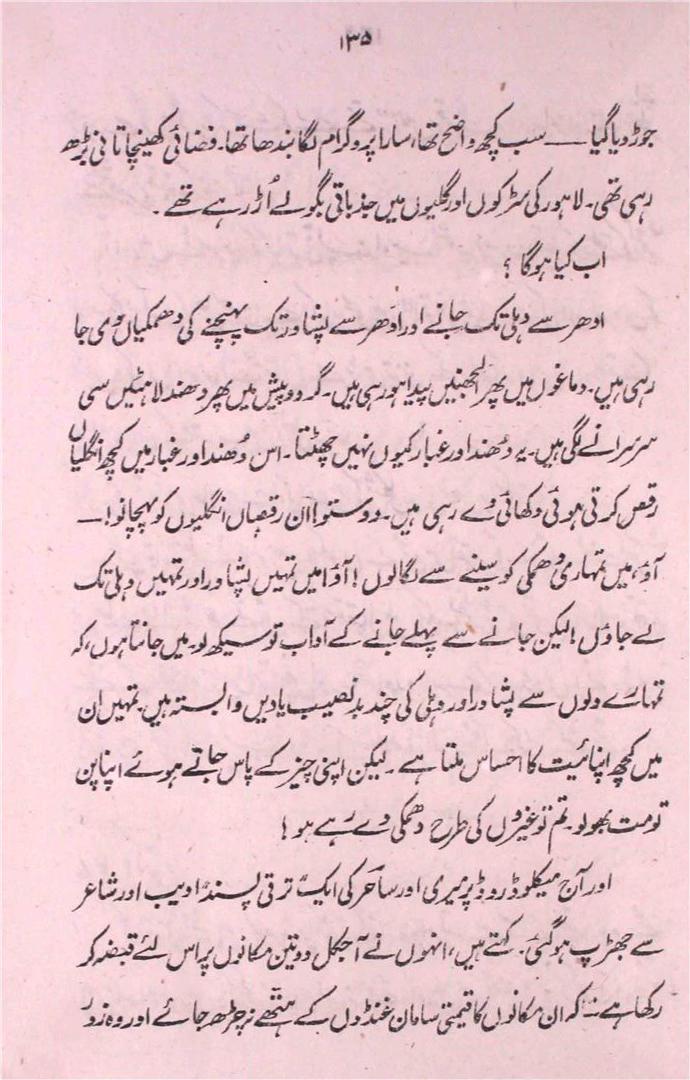 ۱۳۵
جوڑ دیا گیا —— سب کچھ واضح تھا، سارا پروگرام لگا بندھا تھا۔ فضائی کھینچا تانی بڑھ
رہی تھی۔ لاہور کی سڑکوں اور گلیوں میں جذباتی بگولے اُڑ رہے تھے۔
اب کیا ہوگا ؟
ادھر سے دہلی تک جانے اور اُدھر سے پشاور تک پہنچنے کی دھمکیاں دی جا
رہی ہیں۔ دماغوں میں پھر الجھنیں پیدا ہو رہی ہیں۔ گرد و پیش میں پھر دھندلاہٹیں سی
سرسرانے لگی ہیں۔ یہ دُھند اور غبار کیوں نہیں چھٹتا۔ اس دُھند اور غبار میں کچھ انگلیاں
رقص کرتی ہوئی دکھائی دے رہی ہیں۔ دوستو! ان رقصاں انگلیوں کو پہچانو! —
آؤ، میں تمہاری دھمکی کو سینے سے لگالوں! آؤ! میں تمہیں پشاور اور تمہیں دہلی تک
لے جاؤں! لیکن جانے سے پہلے جانے کے آداب تو سیکھ لو۔ میں جانتا ہوں، کہ
تمہارے دلوں سے پشاور اور دہلی کی چند بدنصیب یادیں وابستہ ہیں۔ تمہیں ان
میں کچھ اپنائیت کا احساس ملتا ہے۔ لیکن اپنی چیز کے پاس جاتے ہوئے اپنا پن
تو مت بھولو۔ تم تو غیروں کی طرح دھمکی دے رہے ہو!
اور آج میکلوڈ روڈ پر میری اور ساحر کی ایک ترقی پسند ادیب اور شاعر
سے جھڑپ ہوگئی۔ کہتے ہیں، انہوں نے آجکل دو تین مکانوں پر اس لئے قبضہ کر
رکھا ہے — کہ ان مکانوں کا قیمتی سامان غنڈوں کے ہتھے نہ چڑھ جائے اور وہ زور